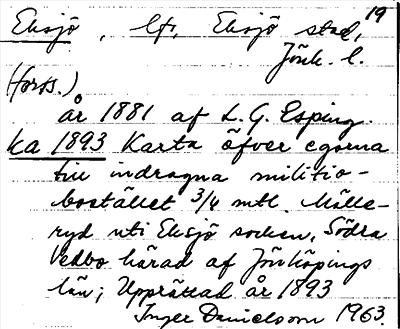 19
Eksjö, lf, Eksjö stad,
Jönk. l.
(forts.)
år 1881 af L. G. Esping.
ka 1893 Karta öfver egorna
till indragna militie-
bostället 3/4 mtl. Målle-
ryd uti Eksjö socken, Södra
Vedbo härad af Jönköpings
län; Upprättad år 1893
Inger Danielsson 1963.